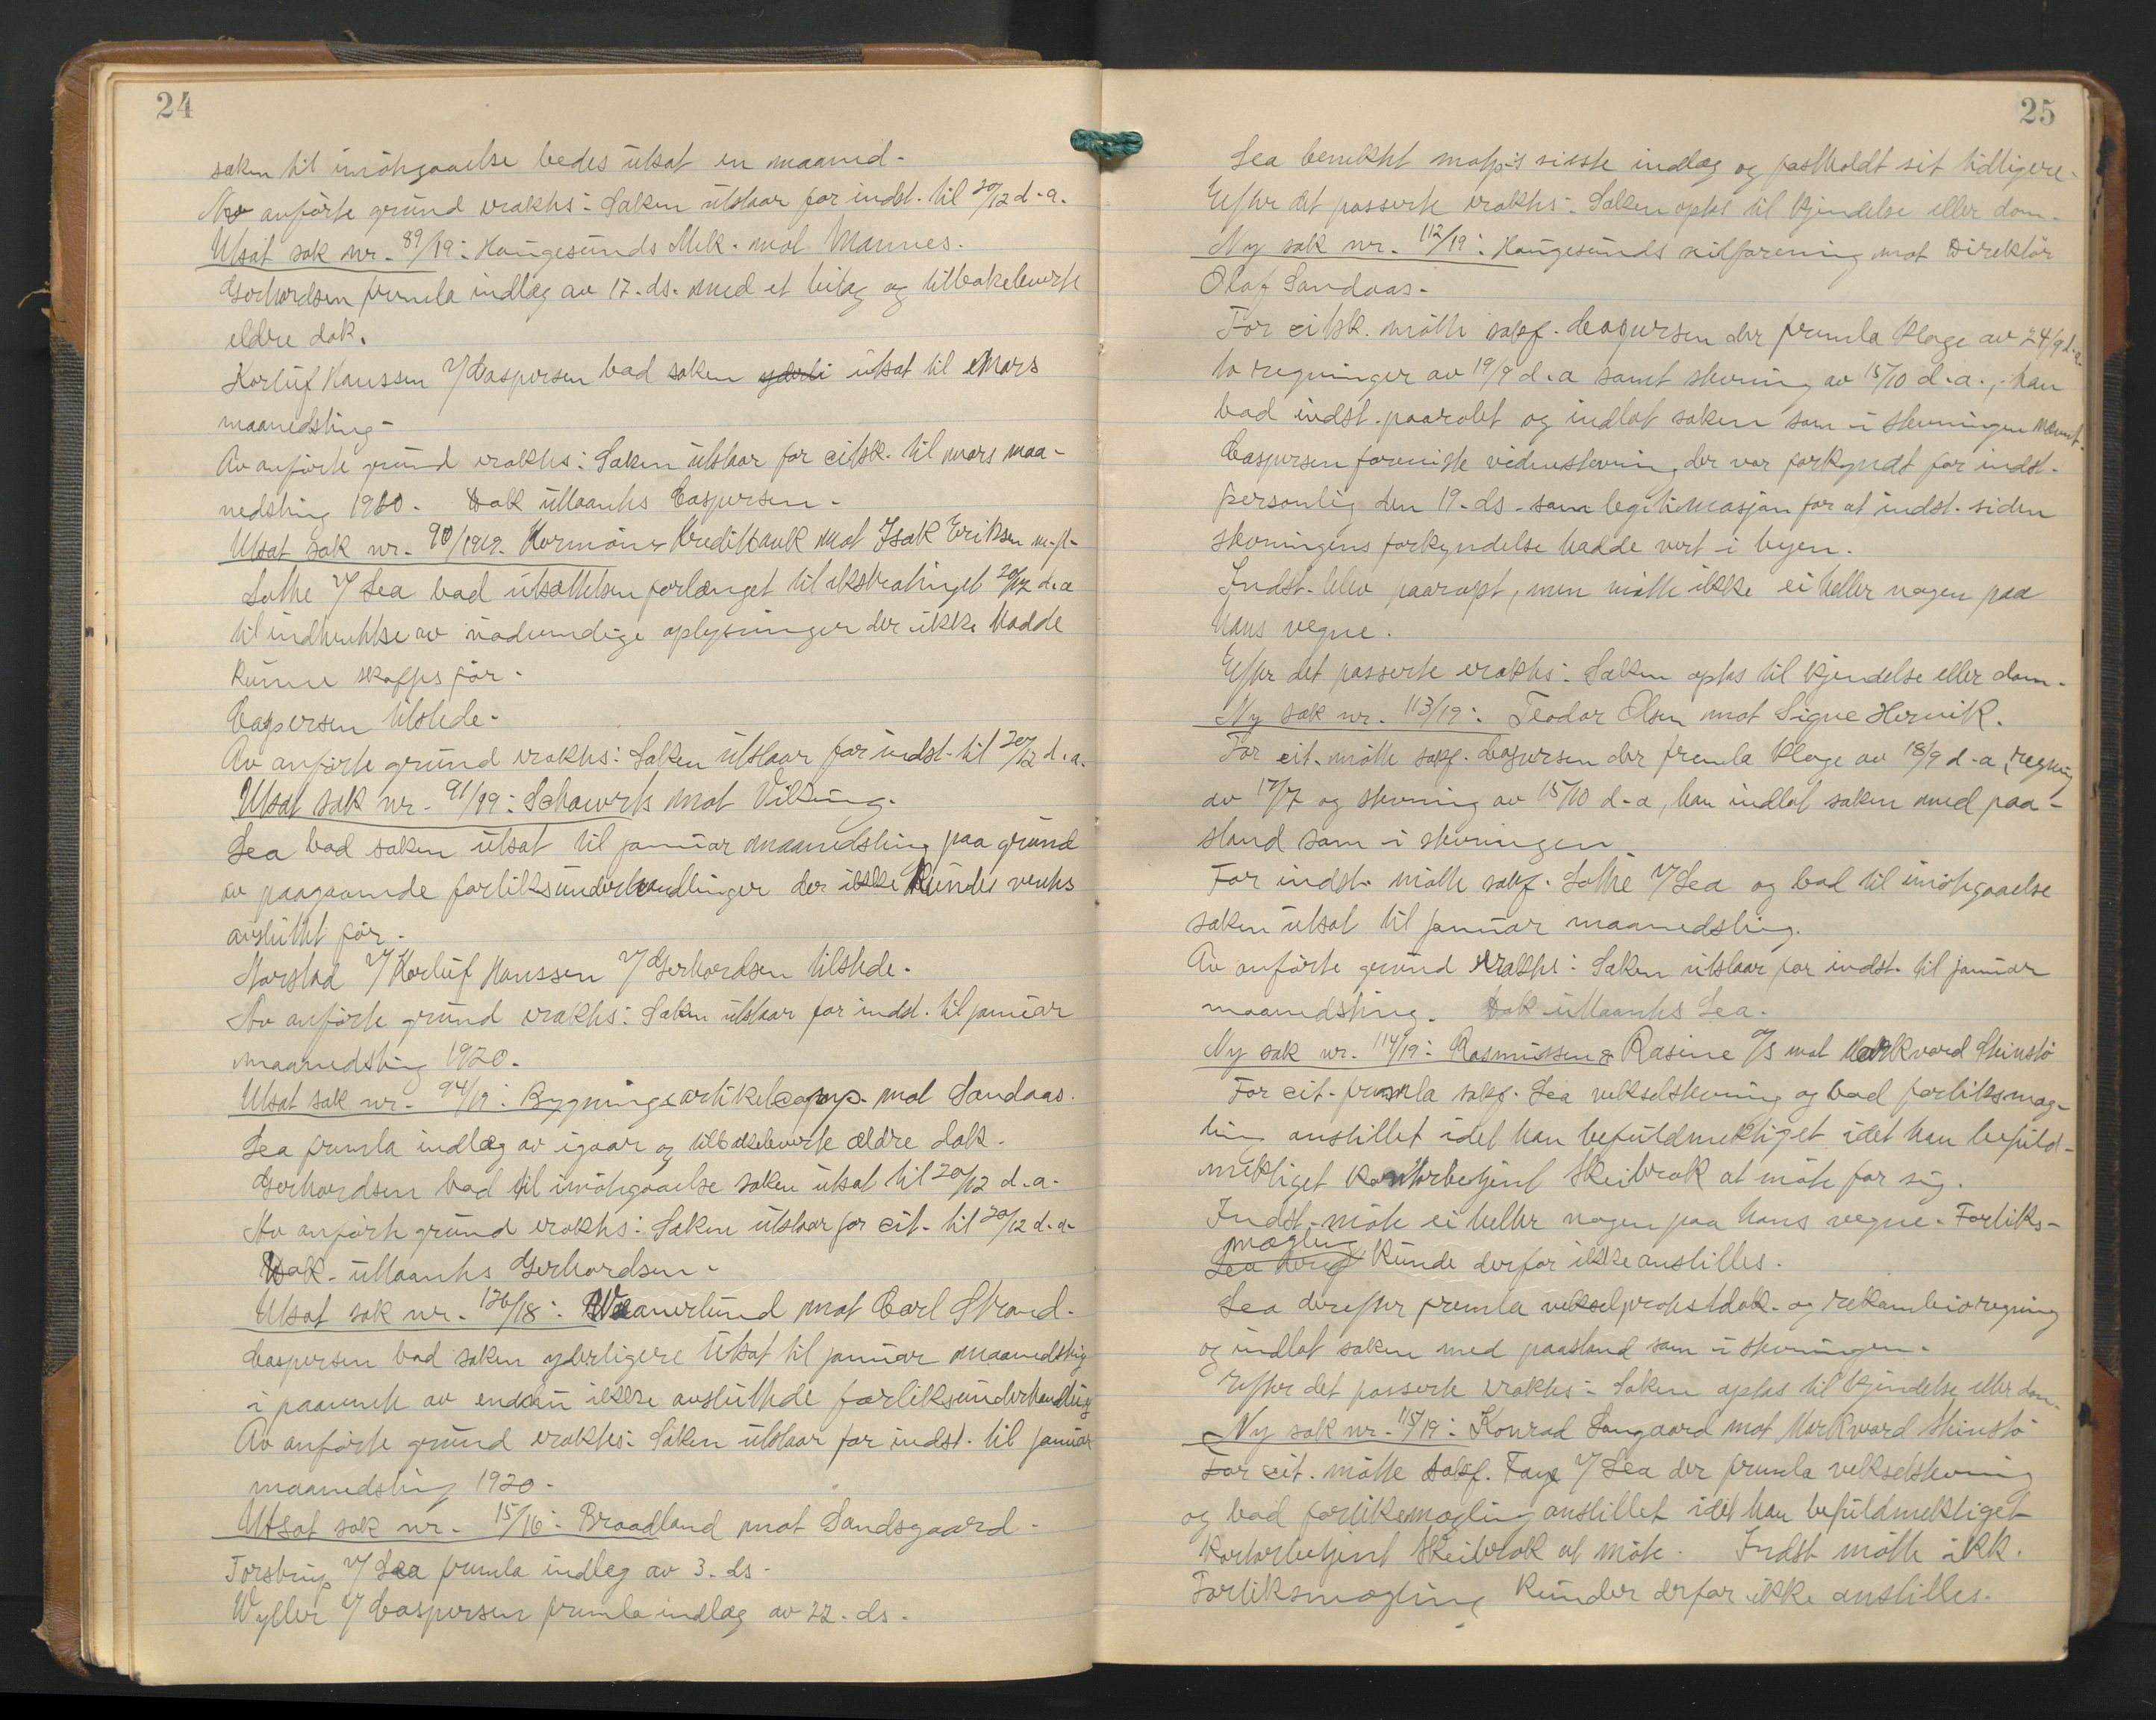 24
saken til imøtegaaelse bedes utsat en maaned.
Av anførte grund eraktes: Saken utstaar for indst. til 20/12 d.a.
Utsat sak nr. 89/19: Haugesunds Mek. mot Mannes.
Gerhardsen fremla indlæg av 17. ds. med et bilag og tilbakeleverte
eldre dok.
Korluf Hanssen v/ Caspersen bad saken yderli utsat til Mars
maanedsting.
Av anførte grund eraktes: Saken utstaar for citsk. til mars maa-
nedsting 1920. Dok utlaantes Caspersen.
Utsat sak nr. 90/1919. Karmöns Kreditbank mot Isak Eriksen m.fl.
Lothe v/ Sea bad utsættelsen forlænget til ekstratinget 20/12 d.a
til indhentelse av nødvendige oplysninger der ikke hadde
kunne skaffes før.
Caspersen tilstede.
Av anførte grund eraktes: Saken utstaar for indst. til 20/12 d.a.
Utsat sak nr. 91/19: Schawerts mot Viking.
Sea bad saken utsat til januar maanedsting paa grund
av paagaaende forliksunderhandlinger der ikke kundes ventes
avsluttet før.
Norstad v/ Korluf Hanssen v/ Gerhardsen tilstede.
Av anførte grund eraktes: Saken utstaar for indst. til januar
maanedsting 1920.
Utsat sak nr. 94/19: Bygningsartikelcomp. mot Sandaas.
Sea fremla indlæg av igaar og tilbakeleverte ældre dok.
Gerhardsen bad til imøtegaaelse saken utsat til 20/12 d.a.
Av anførte grund eraktes: Saken utstaar for cit. til 20/12 d.a.
Dok. utlaantes Gerhardsen.
Utsat sak nr. 126/18: Wannerlund mot Carl Strand.
Caspersen bad saken yderligere utsat til januar maanedsting
i paavente av endnu ikke avsluttede forliksunderhandling
Av anførte grund eraktes: Saken utstaar for indst. til januar
maanedsting 1920.
Utsat sak nr. 15/16: Braadland mot Sandsgaard.
Torstrup v/ Sea fremla indlæg av 3. ds.
Wyller v/ Caspersen fremla indlæg av 22. ds.
25
Sea benektet motp.s sisste indlæg og fastholdt sit tidligere.
Efter det passerte eraktes: Saken optas til kjendelse eller dom.
Ny sak nr. 112/19: Haugesunds skiforening mot Direktør
Olaf Sandaas.
For citsk. møtte sakf. Caspersen der fremla klage av 24/9 d.a.
to regninger av 19/9 d.a samt stevning av 15/10 d.a., han
bad indst. paaropt og indlot saken som i stevningen nævnt.
Caspersen foreviste vidnestevning der var forkyndt for indst.
personlig den 19. ds. som legitimasjon for at indst. siden
stevningens forkyndelse hadde vert i byen.
Indst. blev paaropt, men møtte ikke ei heller nogen paa
hans vegne.
Efter det passerte eraktes: Saken optas til kjendelse eller dom.
Ny sak nr. 113/19: Teodor Olsen mot Signe Hervik.
For cit. møtte sakf. Caspersen der fremla klage av 18/9 d.a, regning
av 17/7 og stevning av 15/10 d.a, han indlot saken med paa-
stand som i stevningen.
For indst. møtte sakf. Lothe v/ Sea og bad til imøtegaaelse
saken utsat til januar maanedsting.
Av anførte grund eraktes: Saken utstaar for indst. til januar
maanedsting. Dok utlaantes Sea.
Ny sak nr. 114/19: Rasmussen & Rasine A/S mot Markvard Steinstø
For cit. fremla sakf. Sea vekselstevning og bad forliksmæg-
ling anstillet idet han befuldmektiget idet han befuld-
mektiget kontorbetjent Skeibrok at møte for sig.
Indst. møte ei heller nogen paa hans vegne. Forliks-
mægling
Sea kunde derfor ikke anstilles.
Sea derefter fremla vekselprotestdok. og rekambioregning
og indlot saken med paastand som i stevningen.
Efter det passerte eraktes: Saken optas til kjendelse eller dom.
Ny sak nr. 115/19: Konrad Langaard mot Markvard Steinstø
For cit. møtte sakf. Faye v/ Sea der fremla vekselstevning
og bad forliksmægling anstillet idet han befuldmektiget
kontorbetjent Skeibrok at møte. Indst møtte ikk.
Forliksmægling kunder derfor ikke anstilles.